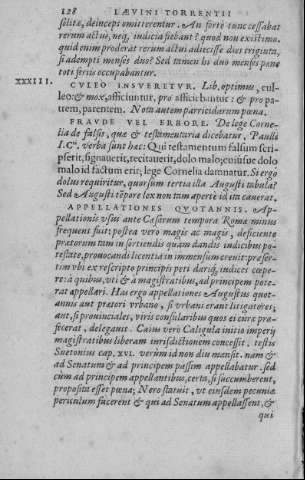 128 LÆVINI TORRENTII
solitæ, deinceps omitterentur. An fortè tunc cessabat
rerum actus, neq, indicia fiebant? quod non existimo.
quid enim proderat rerum actus adiecisse dies triginta,
si adempti menses duo? Sed tamen hi duo menses pæne
tot feriis occupabantur.
XXXIII. CVLEO INSVERETVR. Lib. optimus, cul-
leo: & mox, afficiuntur, pro afficibantur: & pro pa-
tem, parentem. Nota autem parricidarum pœna.
FRAVDE VEL ERRORE. De lege Corne-
lia de falsis, quæ & testamentaria dicebatur, Paulli
I.C. verba sunt hæc: Qui testamentum falsum scri-
pserit, signauerit, recitauerit, dolo malo; cuiúsue dolo
malo id factum erit; lege Cornelia damnatur. Si ergo
dolus requiritur, quorsum tertia illa Augusti tabula?
Sed Augusti tẽpore lex non tum apertè id ita cauerat.
APPELLATIONES QVOTANNIS. Ap-
pellationis vsus ante Cæsarum tempora Romæ minus
frequens fuit: postea vero magis ac magis, deficiente
prætorum tum in sortiendis quam dandis iudicibus po-
testate, prouocandi licentia in immensum creuit: præser-
tim vbi ex rescripto principis peri dariq, iudices cœpe-
re: à quibus, vti & à magistratibus, ad principem pote-
rat appellari. Has ergo appellationes Augustus quot-
annis aut prætori vrbano, si vrbani erant litigatores;
aut, si prouinciales, viris consularibus quos ei curæ præ-
ficerat, delegauit. Caium verò Caligula initio imperij
magistratibus liberam iurisdictionem concessit. testis
Suetonius cap. XVI. verùm id non diu mansit. nam &
ad Senatum & ad principem passim appellabatur. sed
cùm ad principem appellantibus, certa, si succumberent,
proposita esset pœna; Nero statuit, vt eiusdem pecuniæ
periculum facerent & qui ad Senatum appellassent, &
qui